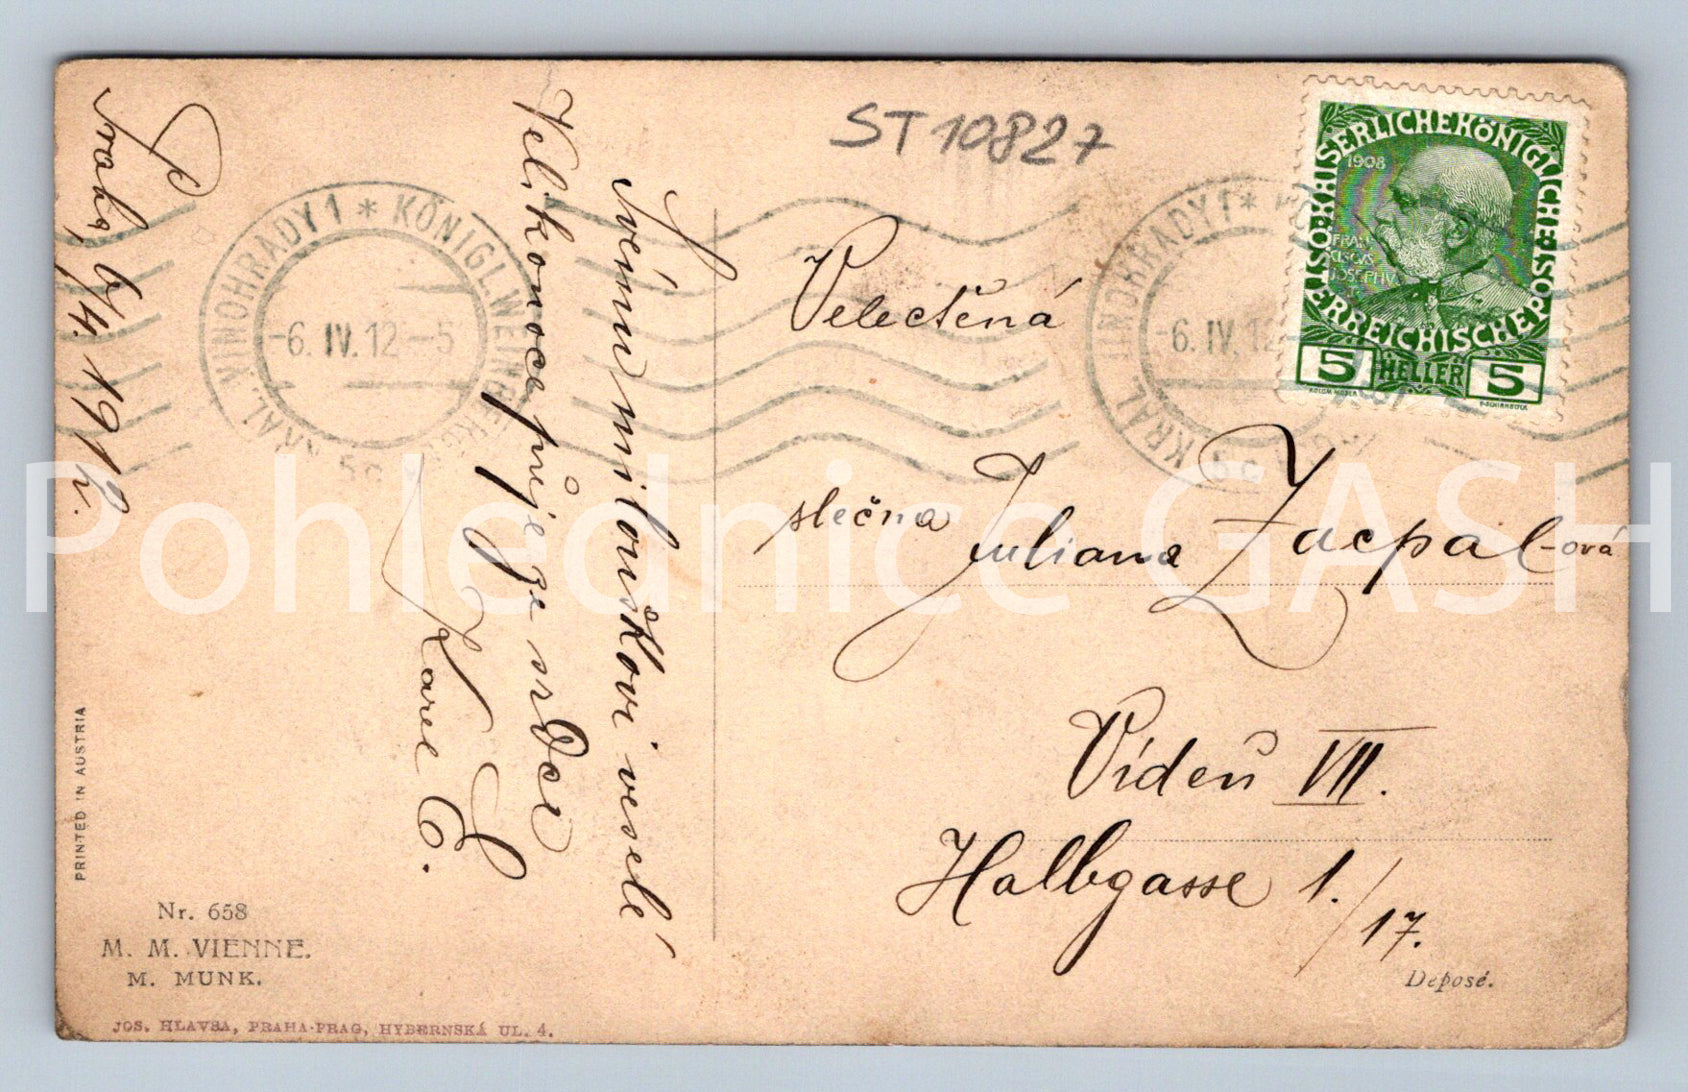 ST 10827
Praha, 6/4. 1912.
Svému miloušKovi veselé
Velikonoce přeje ze srdce
Karel
Velectěná
slečna Juliana Zacpal-ová
Vídeň VII.
Halbgasse 1./17.
KRÁL. VINOHRADY 1 * KÖNIGL. WEINBERGE
-6. IV. 12 - 5
5c
KRÁL. VINOHRADY 1 *
-6. IV. 12
5c
KAISERLICHE KÖNIGLICHE
ÖSTERREICHISCHE POST
1908
FRAN
CISCVS
IOSEPHVS
5 HELLER 5
PRINTED IN AUSTRIA
Nr. 658
M. M. VIENNE.
M. MUNK.
JOS. HLAVSA, PRAHA-PRAG, HYBERNSKÁ UL. 4.
Deposé.
Pohlednice GASH